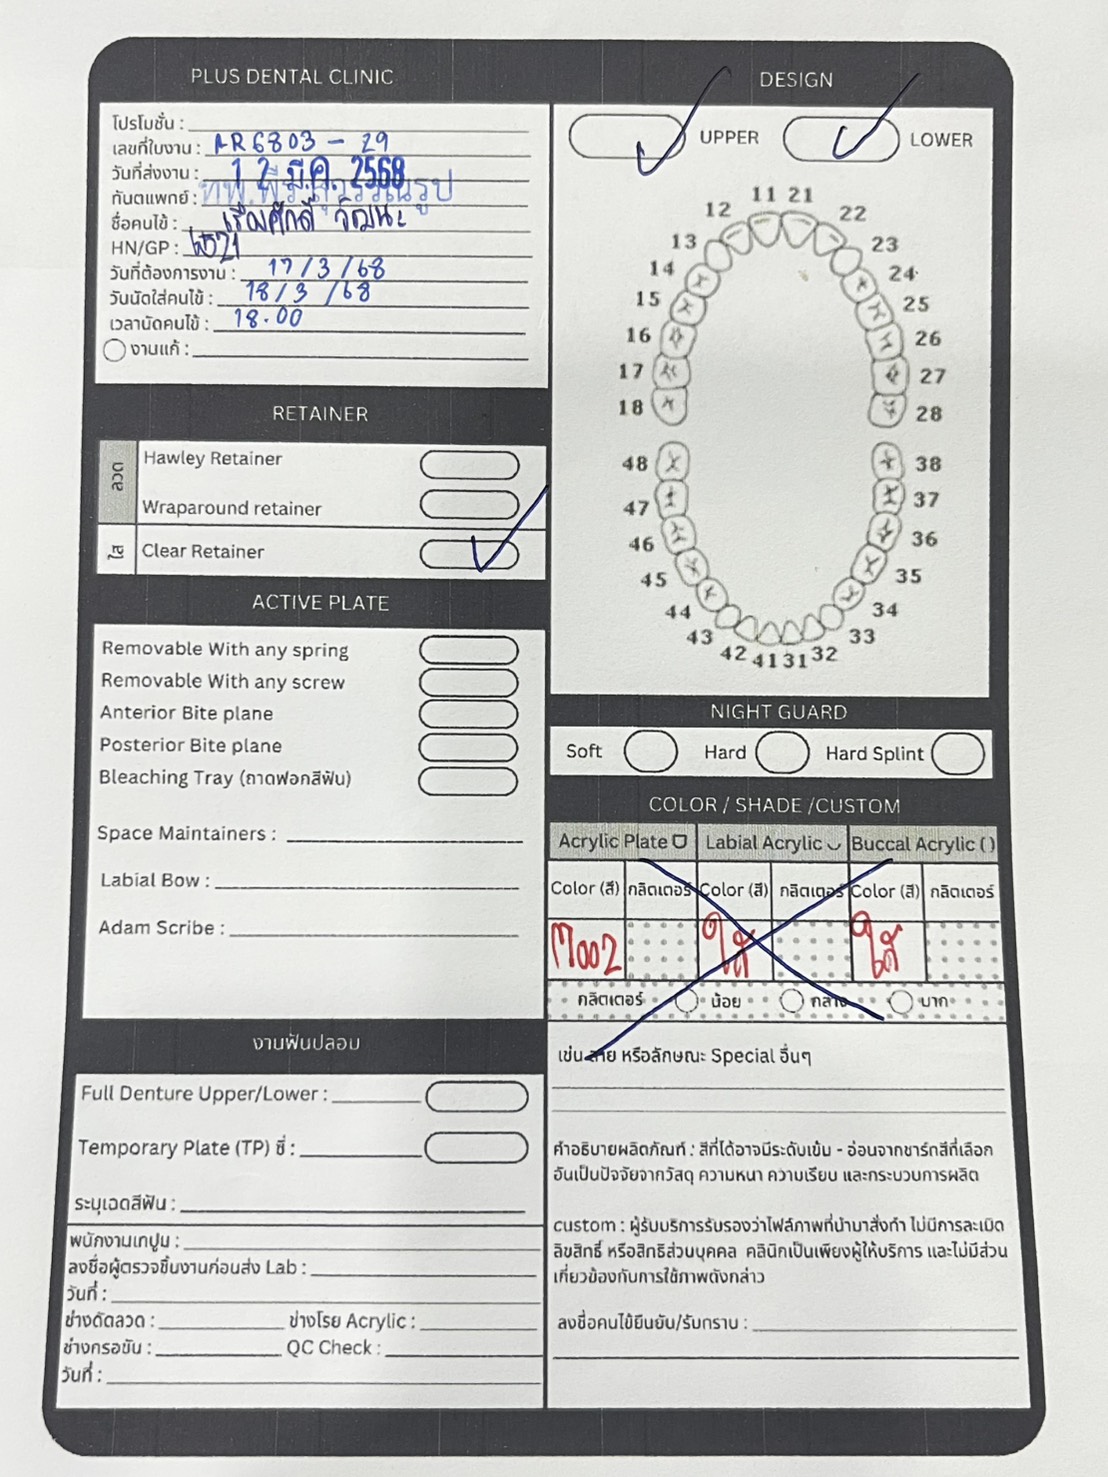 PLUS DENTAL CLINIC
โปรโมชั่น :
เลขที่ใบงาน : AR6803 - 29
วันที่ส่งงาน : 12 มี.ค. 2568
ทันตแพทย์ :
ชื่อคนไข้ : เรืองศักดิ์ วัฒนะ
HN/GP :
วันที่ต้องการงาน : 17/3/68
วันนัดใส่คนไข้ : 18/3/68
เวลานัดคนไข้ : 18.00
งานแก้ :
RETAINER
ลวด
Hawley Retainer
Wraparound retainer
ใส
Clear Retainer
ACTIVE PLATE
Removable With any spring
Removable With any screw
Anterior Bite plane
Posterior Bite plane
Bleaching Tray (ถาดฟอกสีฟัน)
Space Maintainers :
Labial Bow :
Adam Scribe :
งานฟันปลอม
Full Denture Upper/Lower :
Temporary Plate (TP) ซี่ :
ระบุเฉดสีฟัน :
พนักงานเทปูน :
ลงชื่อผู้ตรวจชิ้นงานก่อนส่ง Lab :
วันที่ :
ช่างดัดลวด : ช่างโรย Acrylic :
ช่างกรอขัด : QC Check :
วันที่ :
DESIGN
UPPER LOWER
11 21
12 22
13 23
14 24
15 25
16 26
17 27
18 28
48 38
47 37
46 36
45 35
44 34
43 33
42 41 31 32
NIGHT GUARD
Soft Hard Hard Splint
COLOR / SHADE /CUSTOM
Acrylic Plate Labial Acrylic Buccal Acrylic ( )
Color (สี) กลิตเตอร์ Color (สี) กลิตเตอร์ Color (สี) กลิตเตอร์
M002 ใส ใส
กลิตเตอร์ น้อย กลาง มาก
เช่น ลาย หรือลักษณะ Special อื่นๆ
คำอธิบายผลิตภัณฑ์ : สีที่ได้อาจมีระดับเข้ม - อ่อนจากชาร์กสีที่เลือก
อันเป็นปัจจัยจากวัสดุ ความหนา ความเรียบ และกระบวนการผลิต
custom : ผู้รับบริการรับรองว่าไฟล์ภาพที่นำมาสั่งทำ ไม่มีการละเมิด
ลิขสิทธิ์ หรือสิทธิส่วนบุคคล คลินิกเป็นเพียงผู้ให้บริการ และไม่มีส่วน
เกี่ยวข้องกับการใช้ภาพดังกล่าว
ลงชื่อคนไข้ยืนยัน/รับทราบ :